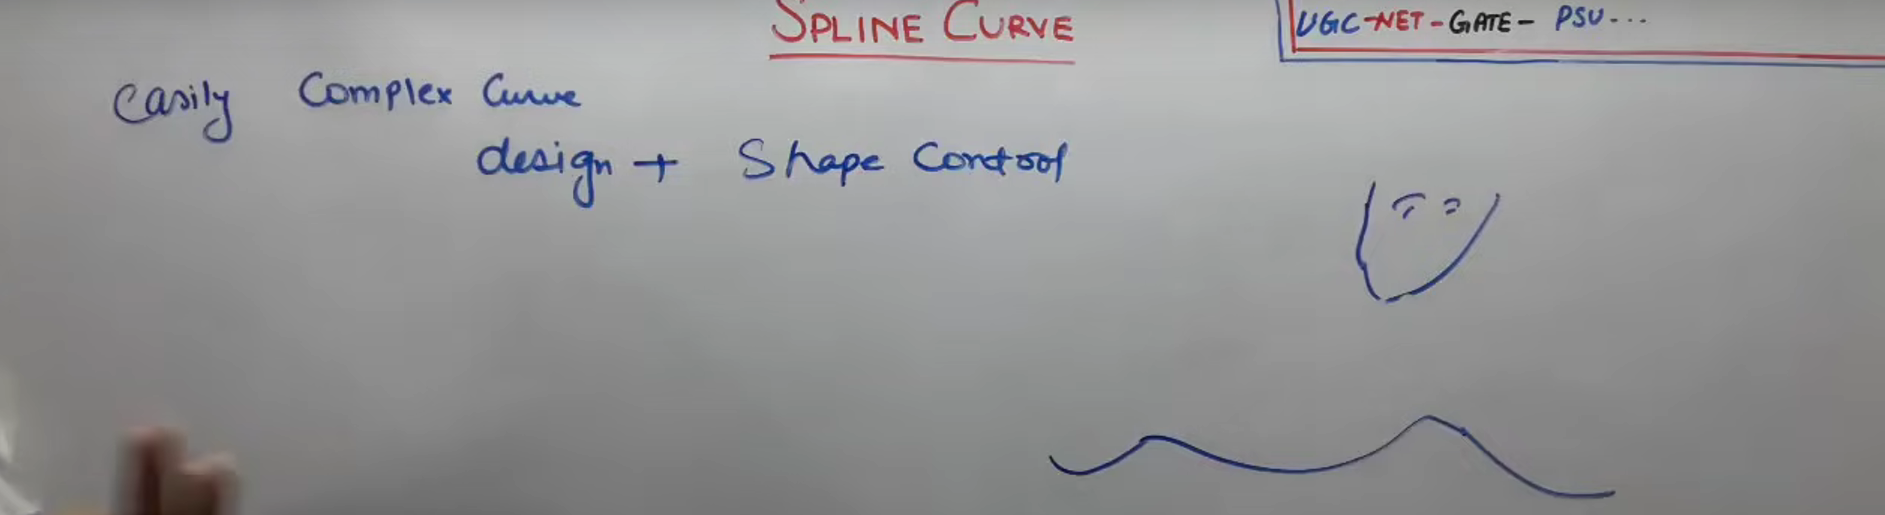 SPLINE CURVE
UGC-NET-GATE- PSU...
Easily Complex Curve
design + Shape Control